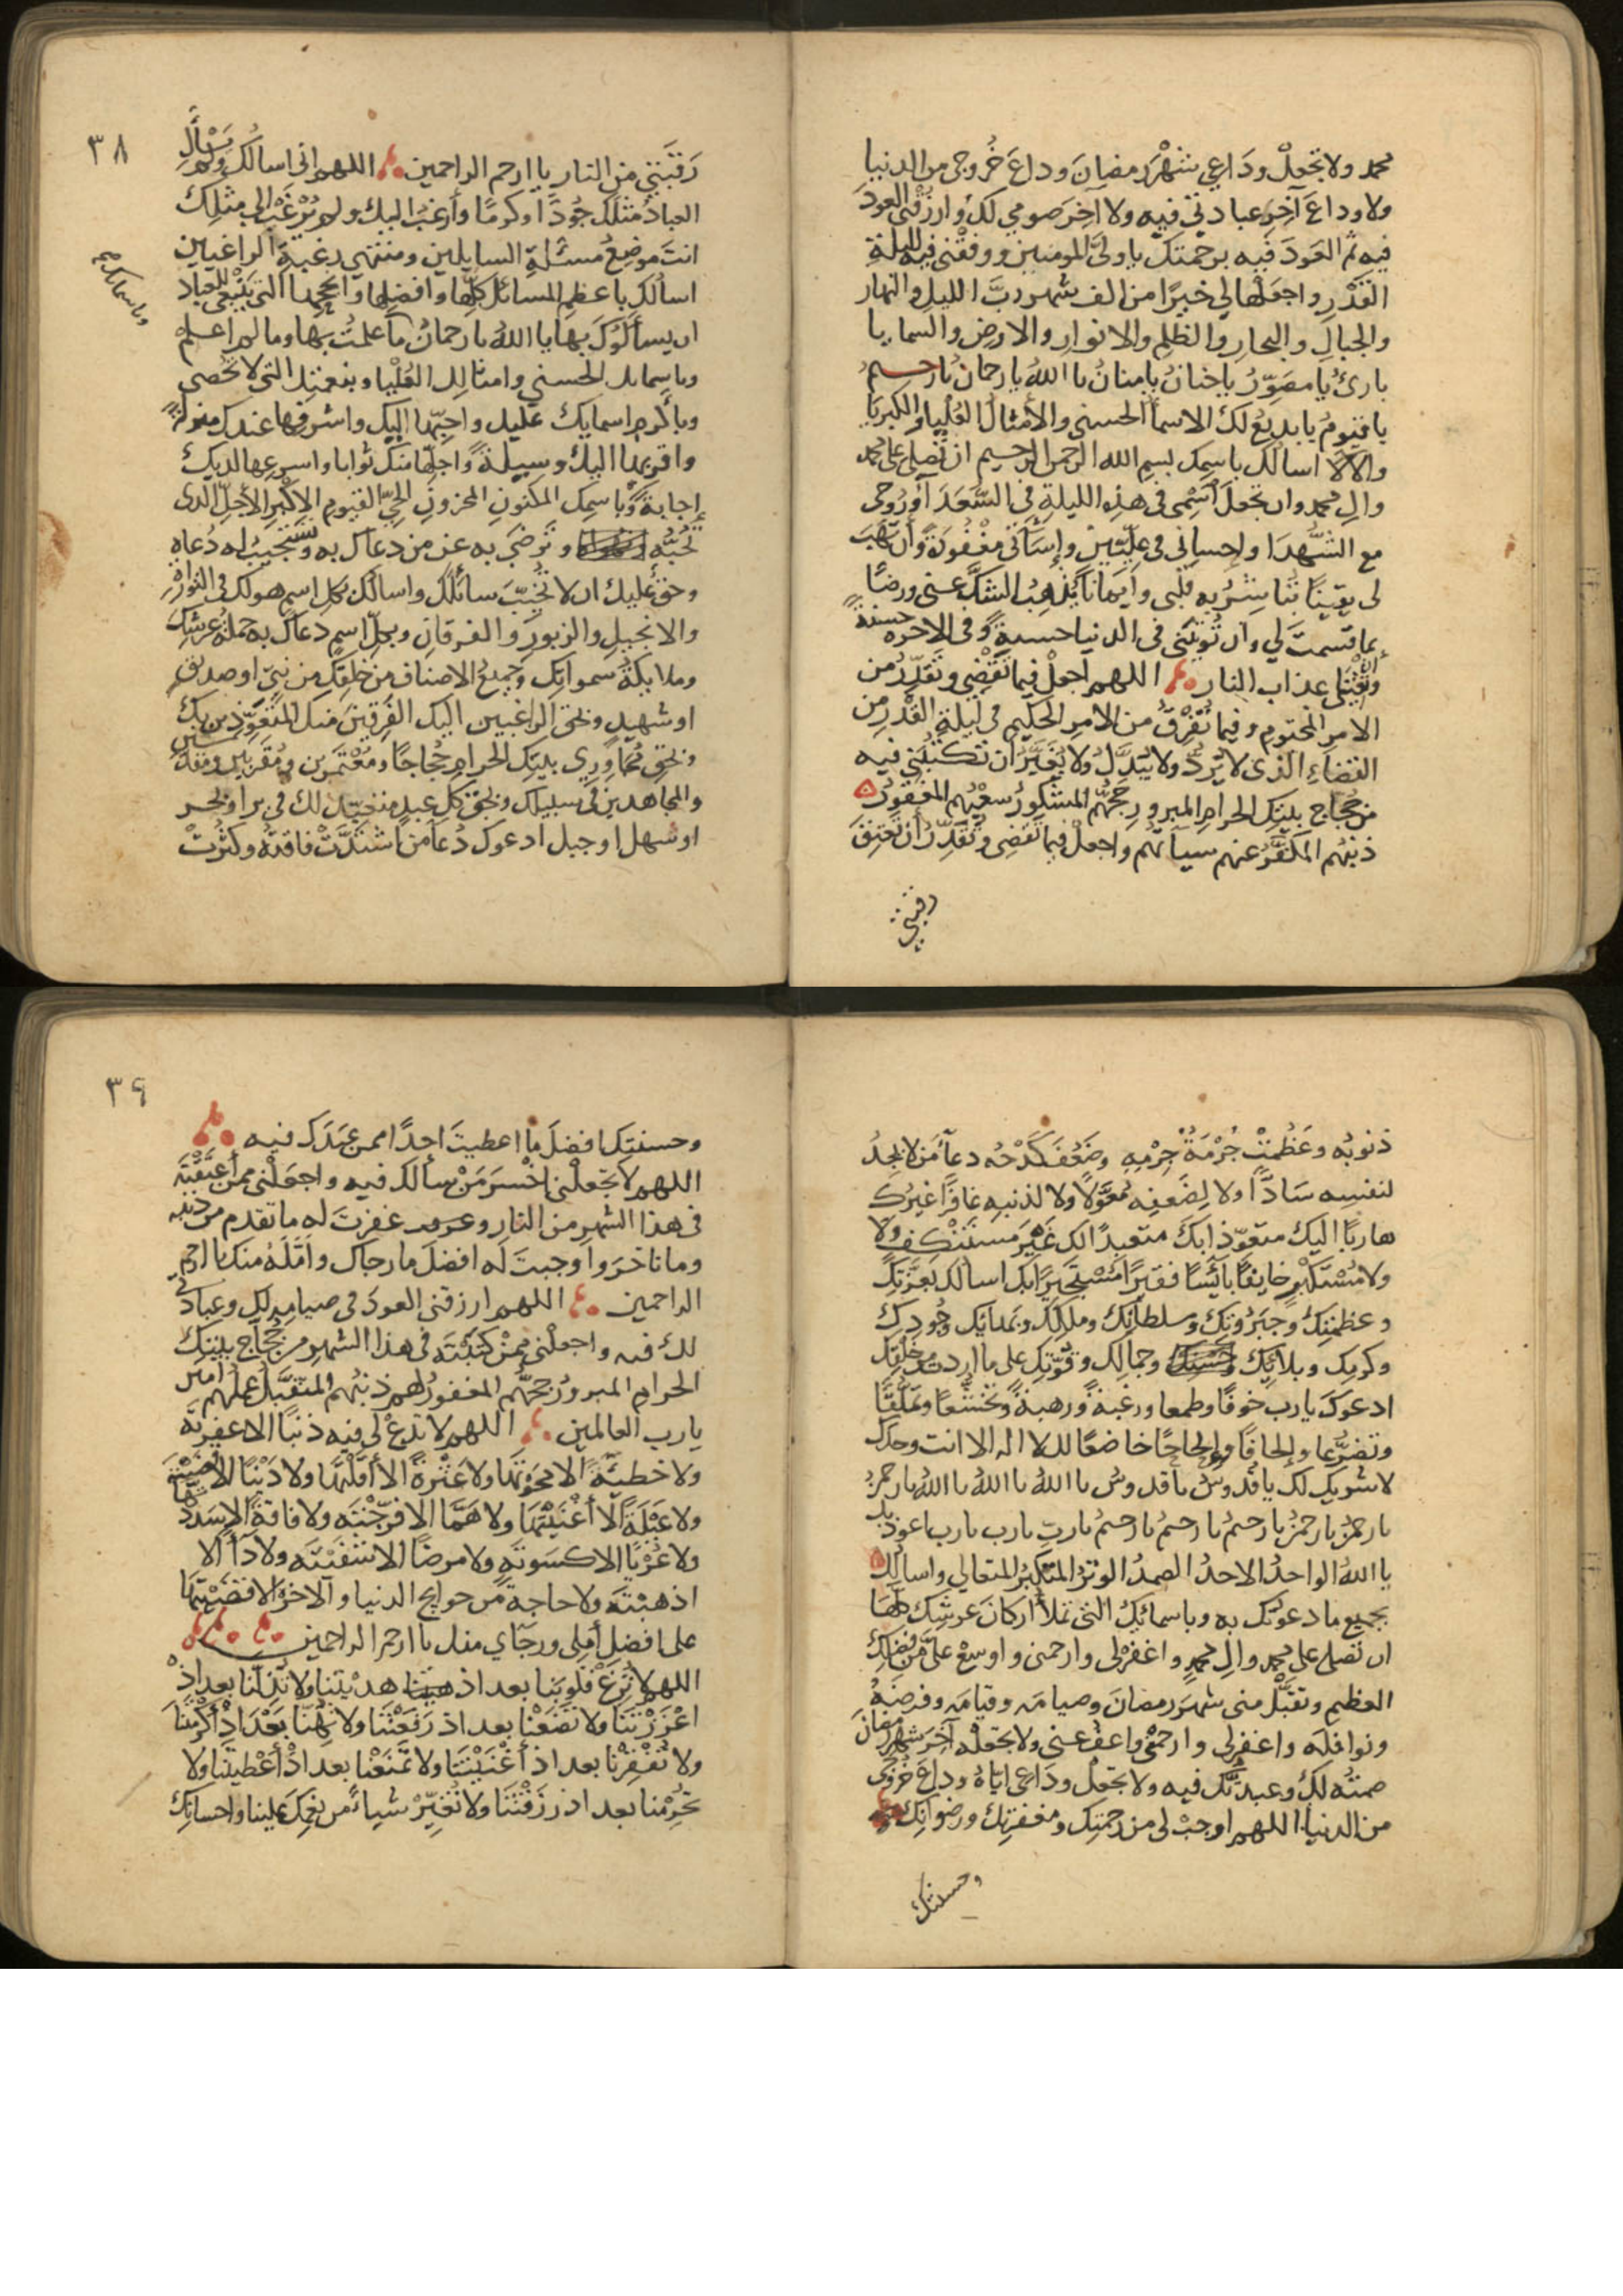 محمد ولا تجعلْ ودَاعي شهْرَ رمضانَ وداعَ خُروجي من الدنيا
ولا وداعَ آخِرِ عبادتي فيه ولا آخِرَ صومي لك وارزقْني العودَ
فيه ثم العَودَ فيه برحمتك يا وليَّ المومنين ووفقْني فيه لليلةِ
القدْرِ واجعلْها لي خيرًا من الف شهر ربَّ الليلِ والنهار
والجبالِ والبحارِ والظلمِ والانوارِ والارضِ والسما يا
بارئُ يا مصوِّرُ يا حنانُ يا منانُ يا اللهُ يا رحمانُ يا رحيمُ
يا قيومُ يا بديعُ لك الاسمأ الحسنى والأمثالُ العُليا والكبريا
والآلا اسالك باسمِك بسمِ الله الرحمن الرحيم ان تصلي على محمد
والِ محمد وان تجعلَ اسْمي في هذه الليلةِ في السُّعَدَا ورُوحي
مع الشُّهدَا واحساني في علِّيّين وإسَآتي مغْفُورةً وأن تهَبَ
لي يقينًا تُباشِرُ به قلبي وايمانًا يُذهِبُ الشكَّ عني ورضًا
بما قسمتَ لي وان تُوتيَني في الدنيا حسنةً وفي الاخرة حسنةً
وان تقِيَني عذاب النار اللهم اجعلْ فيما تقْضِي وتقدِّرُ من
الامرِ المحتومِ وفيما تُفْرِقُ من الامرِ الحكيمِ في ليلةِ القدْرِ من
القضاءِ الذي لا يُرَدُّ ولا يُبَدَّلُ ولا يُغيَّرُ ان تكتبَني فيه
من حُجاجِ بيتِك الحرامِ المبرورِ حجُّهم المشكورُ سعْيُهم المغفورُ
ذنبُهم المكفَّرُ عنهم سيآتُهم واجعلْ فيما تقضِي وتُقدِّرُ أن تعتِقَ
رقبتي
٣٨
رَقبَتي من النار يا ارحم الراحمين اللهم اني اسالُك ولم يَسْألِ
العبادُ مثلَك جُودًا وكرمًا وأرغَبُ اليك ولم يُرْغَبْ الى مثلِك
انتَ موضِعُ مسئلةِ السايلين ومنتهي رغبةِ الراغبين
اسألُك باعظمِ المسائلِ كلِّها وافضلِها وانجحِها التي ينبغي للعباد
ان يسألوكَ بها يا اللهُ يا رحمانُ ما علمتُ بها وما لم اعلمْ
وباسمائك الحسنى وامثالِك العُلْيا وبنعمتِك التي لا تُحصى
وباسمائك
وباكرمِ اسمايك عليك واحبِّها اليك واشرفِها عندك منزلةً
واقربِها اليك وسيلةً واجلِّها منك ثوابا واسرعِها لديك
إجابةً وباسمِك المكنونِ المخزونِ الحيِّ القيومِ الاكبرِ الأجلِّ الذي
تُحبُّه وترضَى به عن من دعاك به وتستجيبُ له دُعاه
وحقٌّ عليك ان لا تُخيِّبَ سائلَك واسالُك بكل اسمٍ هو لك في التوراةِ
والانجيلِ والزبورِ والفرقانِ وبكلِّ اسمٍ دعاك به حملةُ عرشِك
وملايكةُ سمواتِك وجميعُ الاصنافِ من خلقِك من نبيٍّ او صديقٍ
او شهيدٍ وبحق الراغبين اليك الفَرِقينَ منك المتعوِّذين بك
وبحقِ مُجاوِرِي بيتِك الحرامِ حُجاجًا ومُعْتمَرين ومُقرَبين ومقدَّسين
والمجاهدين في سبيلك وبحق كلِ عبدٍ متعبِّدٍ لك في بر او بحر
او سهل او جبل ادعوك دُعاَ من اشتدَّتْ فاقتُه وكثُرتْ
ذنوبُه وعَظُمتْ جُرْمَةُ جِرْمِهِ وضعُفَ كَدْحُه دعآَ من لا يجِدُ
لنفسِه سَادًّا ولا لِضَعفِه معَوَّلًا ولا لذنبِه غافرًا غيرُك
هاربًا اليك متعوِّذا بكَ متعبدًا لك غيرَ مستنكفٍ ولا
ولا مُسْتَكْبِرٍ خايفًا بآئسًا فقيرًا مُسْتجيرًا بك اسالُك بعزَّتِك
وعظمتِك وجبَرُوتِك وسلطانِك ومللكك وبهائِك وجُودِك
وكرمِك وبلآئِك وجمالِك وقُوّتِك على ما اردتَ من خلقِك
ادعوكَ يا رب خوفًا وطمعا ورغبةً ورهبةً وتخشُّعًا وتملُّقًا
وتضرُّعا وإلحافًا وإلحاحًا خاضعًا لك لا اله الا انت وحدك
لا شريك لك يا قُدوسُ يا قدوسُ يا اللهُ يا اللهُ يا اللهُ يا رحمنُ
يا رحمنُ يا رحمنُ يا رحيمُ يا رحيمُ يا رحيمُ يا ربِّ يا رب يا رب اعوذ بك
يا اللهُ الواحدُ الاحدُ الصمدُ الوترُ المتكبِرُ المتعالي واسألُك
بجميع ما دعوتُك به وباسمائكُ التي تملأُ اركانَ عرشِك كلِّهَا
ان تصلي على محمد والِ محمدٍ واغفرْ لي وارحمني واوسِعْ عليَّ من فضلِك
العظيمِ وتقبَّلْ مني شهرَ رمضانَ وصيامَه وقيامَه وفرضَهُ
ونوافلَه واغفر لي وارحمْني واعفُ عني ولا تجعلْه آخرَ شهرِ رمضانَ
صمتُه لك وعبدتُك فيه ولا تجعلْ ودَاعي ايّاهُ وداعَ خُروجي
من الدنيا اللهم اوجبْ لي من رحمتِك ومغفرتِك ورضوانِك
وحسنتِك
٣٩
وحسنتِك افضلَ ما اعطيتَ احدًا ممن عبَدَك فيه
اللهم لا تجعلْني اخْسَرَ مَنْ سألك فيه واجعَلْني ممن أعتَقْتَه
في هذا الشهرِ من النار وغفرتَ له ما تقدم من ذنبِه
وما تاخرَ واوجبتَ له افضلَ ما رجاك واَمَّلَهُ منك يا ارحم
الراحمين اللهم ارزقني العودَ في صيامِه لك وعبادتِك
لك فيه واجعلْني ممن كتبْتَه في هذا الشهر من حُجاجِ بيتِك
الحرامِ المبرورُ حجُّهم المغفورُ لهم ذنبُهم المتقبَّلُ عملُهم امين
يا رب العالمين اللهم لا تدعْ لي فيه ذنبًا الا غفرتَه
ولا خطيَّةً الا محوتَها ولا عَثْرَةً الا أقلْتَها ولا دَيْنًا الا قضَيْتَه
ولا عَيْلةً الا أغنَيْتَها ولا هَمًّا الا فرّجْتَه ولا فاقةً الا سدَدتَها
ولا عُرْيًا الا كسَوتَه ولا مرضًا الا شفَيْتَه ولا دآءً الا
اذهبْتَه ولا حاجةً من حوايج الدنيا والاخرة الا قضَيْتَها
على افضلِ أمِلي ورجَاي منك يا ارحم الراحمين
اللهم لا تُزِغْ قلوبَنا بعد اذ هدَيْتَنا ولا تُذِلَّنا بعد اذْ
اعْزَزْتَنَا ولا تضَعْنا بعد اذ رَفَعْتَنا ولا تُهِنّا بَعْدَ اذْ أكرَمْتَنَا
ولا تُفْقِرْنا بعد اذ أغْنَيْتَنا ولا تَمْنَعْنا بعد اذْ أعْطَيْتَنا ولا
تَحْرِمْنا بعد اذ رزَقْتَنَا ولا تُغيِّرْ شيأً من نِعَمِك علينا واحسانِك